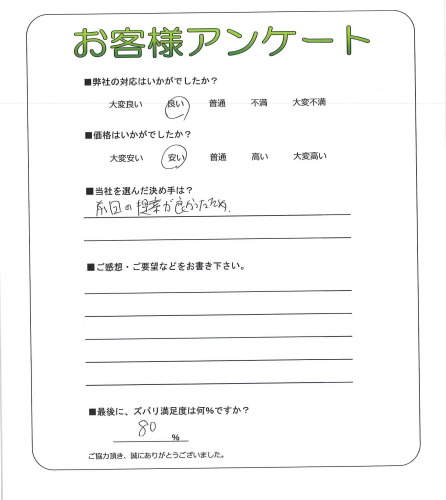 お客様アンケート
■弊社の対応はいかがでしたか？
大変良い 良い 普通 不満 大変不満
■価格はいかがでしたか？
大変安い 安い 普通 高い 大変高い
■当社を選んだ決め手は？
前回の提案が良かったため.
■ご感想・ご要望などをお書き下さい。
■最後に、ズバリ満足度は何％ですか？
80 ％
ご協力頂き、誠にありがとうございました。